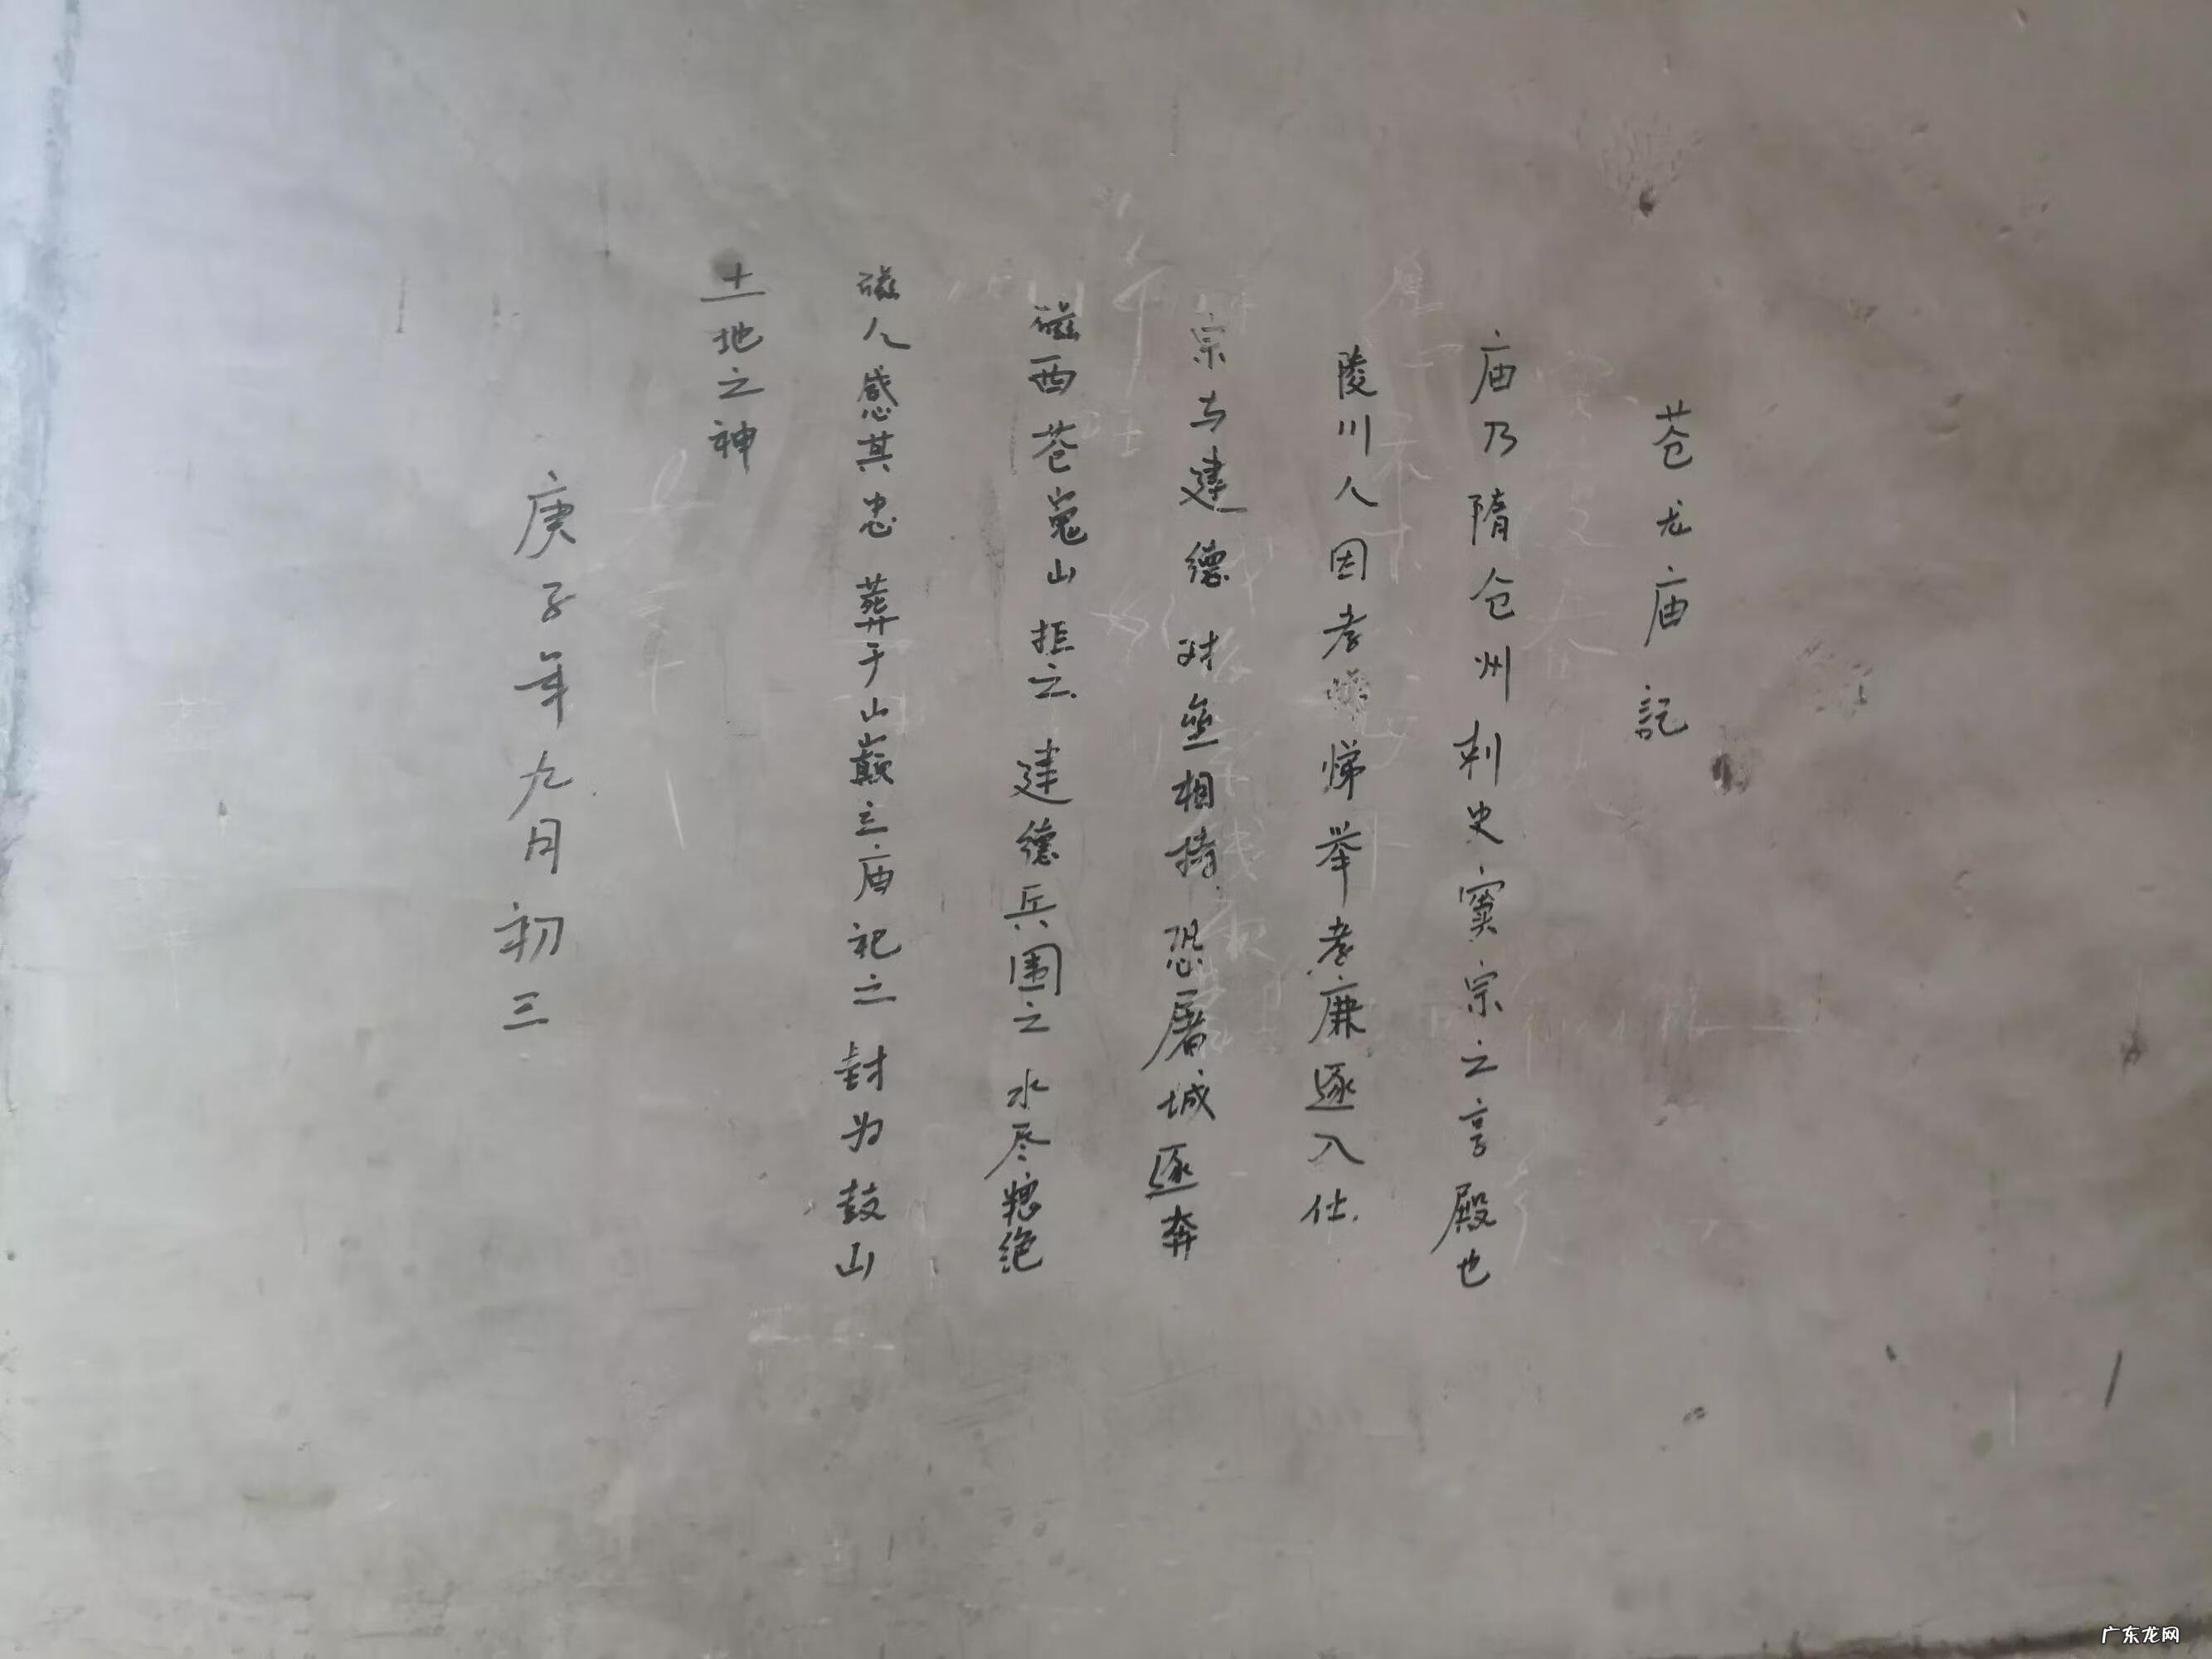 苍龙庙記
庙乃隋仓州刺史窦宗之享殿也
陵川人因孝悌举孝廉逐入仕
宗与建德对垒相持恐屠城逐奔
磁西苍嵬山拒之建德兵围之水尽粮绝
磁人感其忠葬于山巅立庙祀之封为鼓山
土地之神
庚子年九月初三
广东龙网